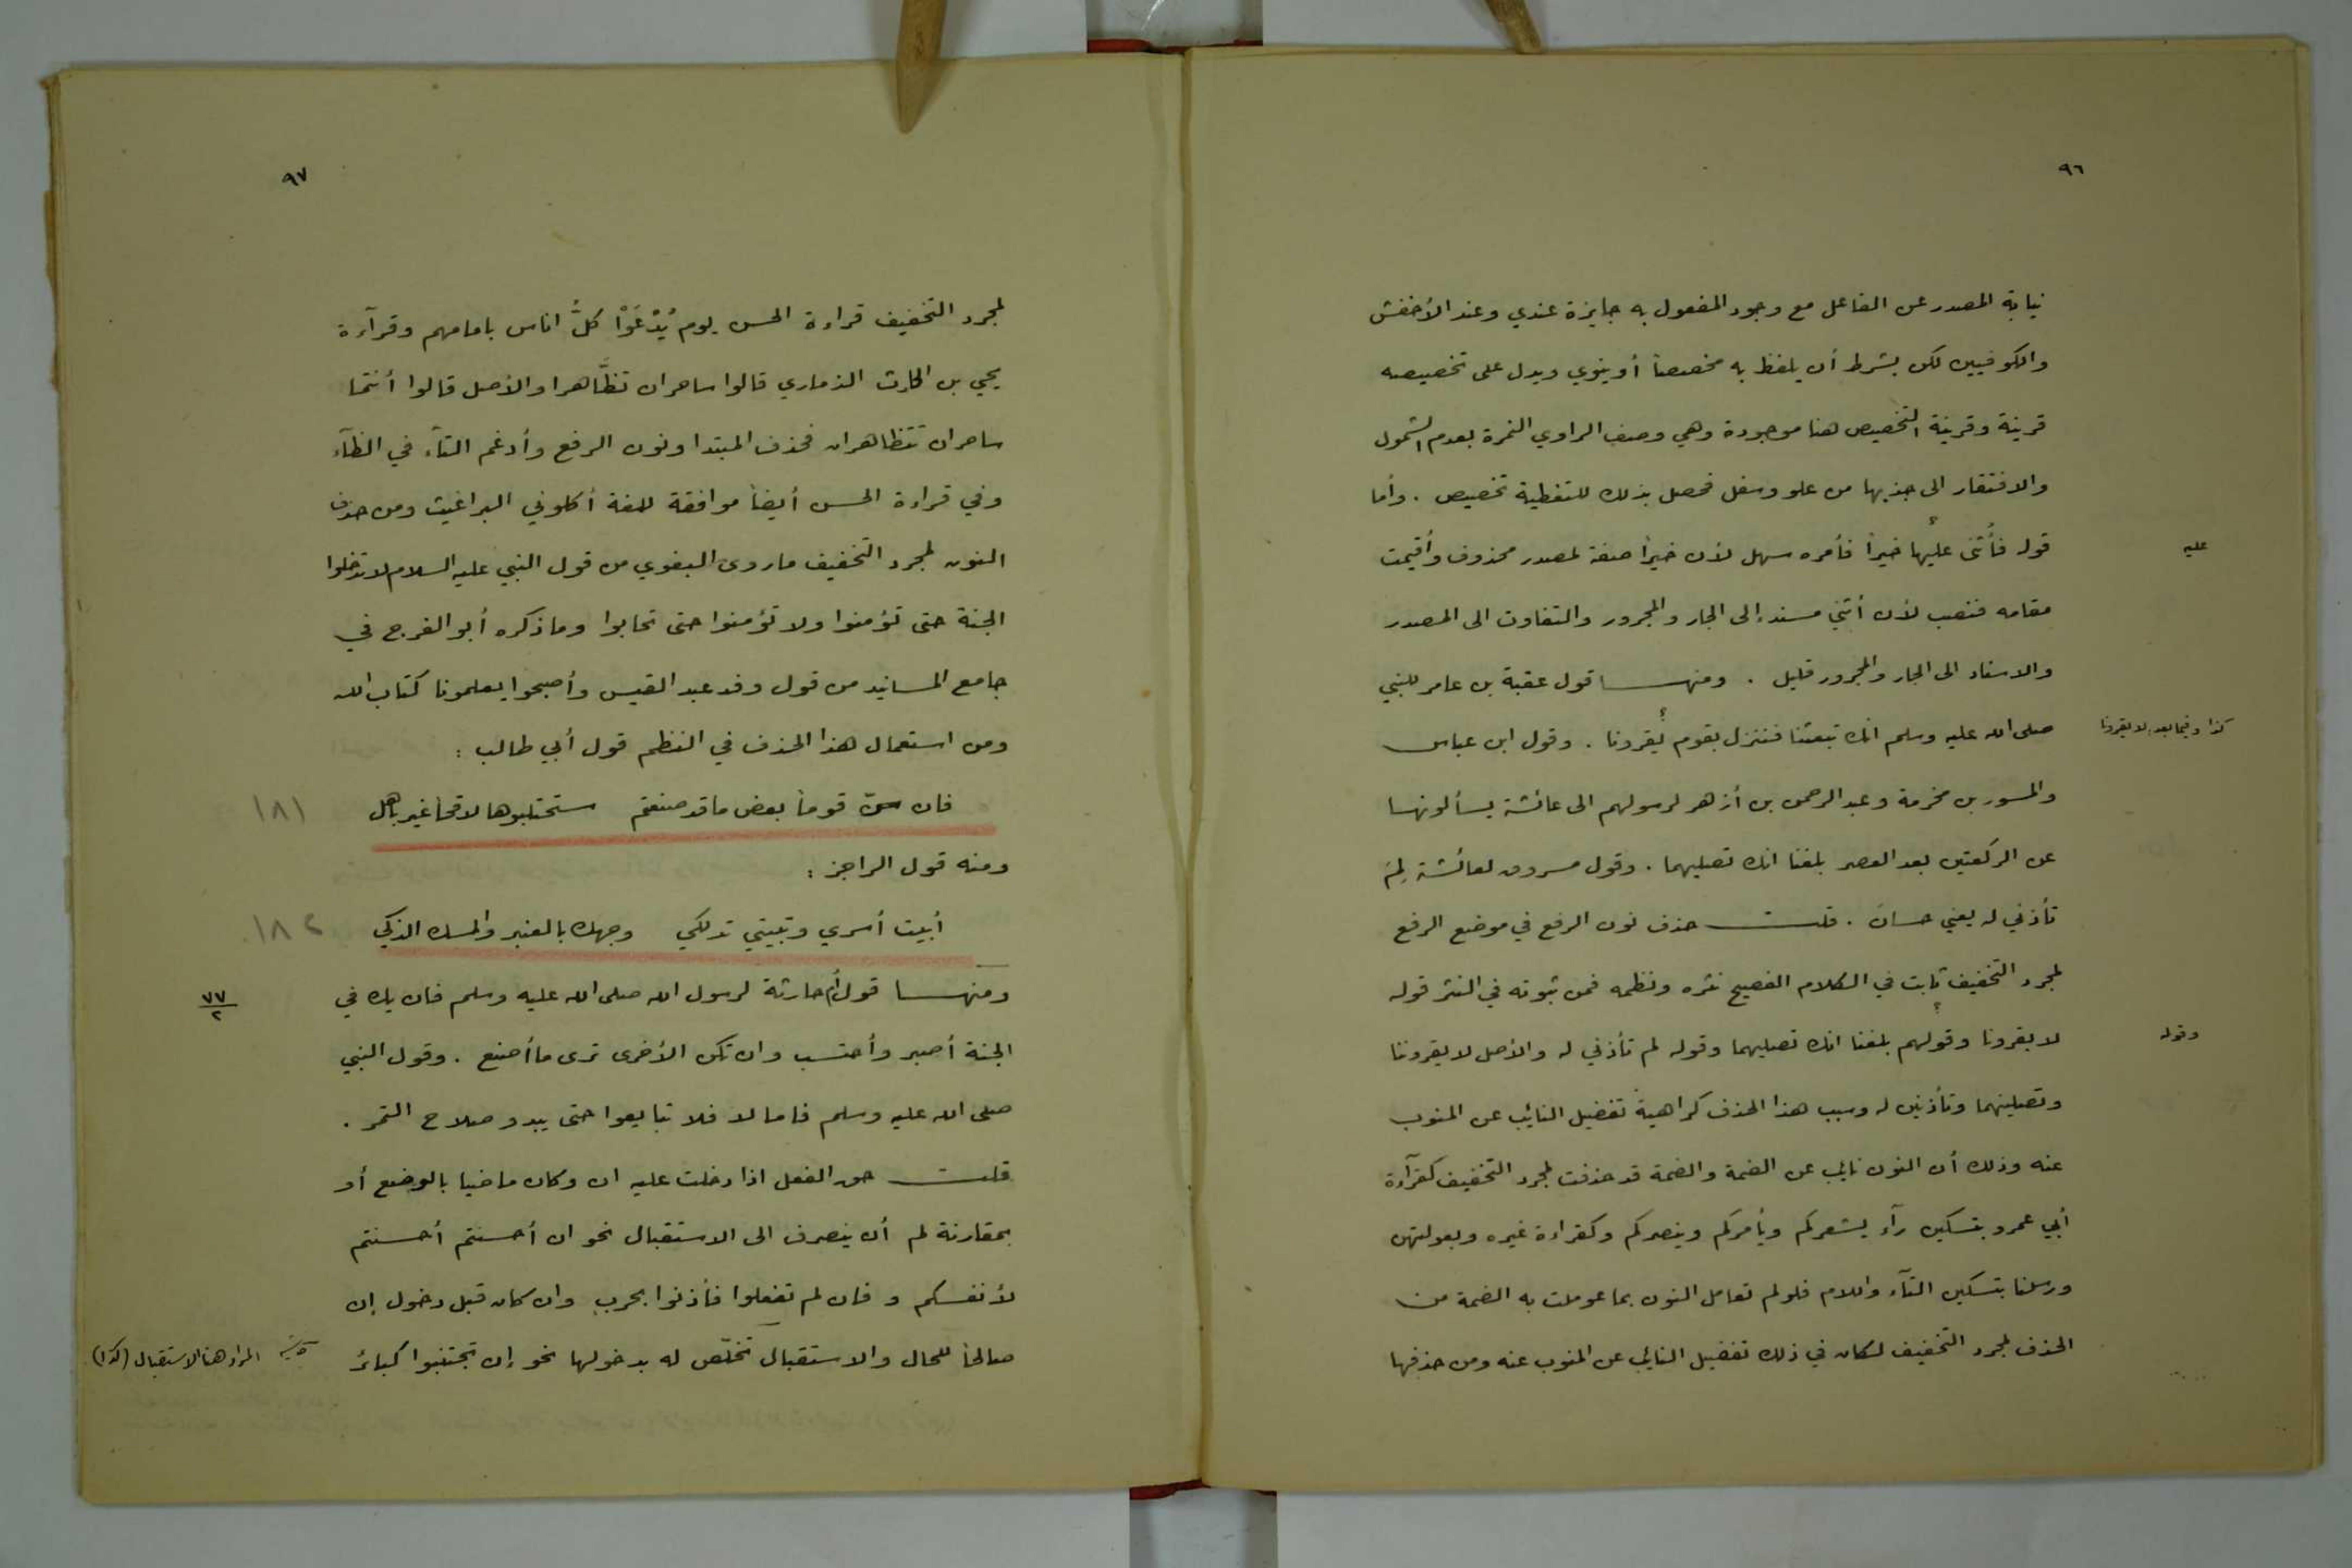 ٩٦
نيابة المصدر عن الفاعل مع وجود المفعول به جايزة عندي وعند الأخفش
والكوفيين لكن بشرط أن يلفظ به مخصصاً أو ينوي ويدل على تخصيصه
قرينة وقرينة التخصيص هنا موجودة وهي وصف الراوي النمرة بعدم الشمول
والافتقار الى جذبها من علو وسفل فحصل بذلك للتغطية تخصيص . وأما
قوله فأُثنى عليها خيراً فأمره سهل لأن خيراً صفة لمصدر محذوف وأقيمت
عليه
مقامه فنصب لأن أثني مسند إلى الجار والمجرور والتفاوت الى المصدر
والاسناد الى الجار والمجرور قليل . ومنها قول عقبة بن عامر للنبي
صلى الله عليه وسلم انك تبعثنا فننزل بقوم يُقرونا . وقول ابن عباس
كذا وفيما بعد لا يقرونا
والمسور بن مخرمة وعبد الرحمن بن أزهر لرسولهم الى عائشة يسألونها
عن الركعتين بعد العصر بلغنا انك تصليهما . وقول مسروق لعائشة لِمَ
تأذني له يعني حسان . قلت حذف نون الرفع في موضع الرفع
لمجرد التخفيف ثابت في الكلام الفصيح نثره ونظمه فمن ثبوته في النثر قوله
لا يقرونا وقولهم بلغنا انك تصليهما وقوله لم تأذني له والأصل لا يقروننا
وقوله
وتصلينهما وتأذنين له وسبب هذا الحذف كراهية تفضيل النائب عن المنوب
عنه وذلك أن النون نايب عن الضمة والضمة قد حذفت لمجرد التخفيف كقرآءة
أبي عمرو بتسكين رآء يشعركم ويأمركم وينصركم وكقراءة غيره وبعولتهن
ورسلنا بتسكين التآء واللام فلو لم تعامل النون بما عوملت به الضمة من
الحذف لمجرد التخفيف لكان في ذلك تفضيل النايب عن المنوب عنه ومن حذفها
٩٧
لمجرد التخفيف قراءة الحسن يوم يُدْعَوْا كلُّ اناس بامامهم وقرآءة
يحيي بن الحارث الذماري قالوا ساحران تظَّاهرا والأصل قالوا أنتما
ساحران تتظاهران فحذف المبتدا ونون الرفع وأدغم التآء في الظآء
وفي قراءة الحسن أيضاً موافقة للغة أكلوني البراغيث ومن حذف
النون لمجرد التخفيف ما روى البغوي من قول النبي عليه السلام لا تدخلوا
الجنة حتى تؤمنوا ولا تؤمنوا حتى تحابوا وما ذكره أبو الفرج في
جامع المسانيد من قول وفد عبد القيس وأصبحوا يعلمونا كتاب الله
ومن استعمال هذا الحذف في النظم قول أبي طالب :
فان سرّ قوماً بعض ما قد صنعتم ستحتلبوها لاقحاً غير باهل
١٨١
ومنه قول الراجز :
أبيت أسري وتبيتي تدلكي وجهك بالعنبر والمسك الذكي
١٨٢
ومنها قول أُم حارثة لرسول الله صلى الله عليه وسلم فان يك في
٧٧/٢
الجنة أصبر وأحتسب وان تكن الأخرى ترى ما أصنع . وقول النبي
صلى الله عليه وسلم فاما لا فلا تبايعوا حتى يبدو صلاح الثمر .
قلت حق الفعل اذا دخلت عليه ان وكان ماضيا بالوضع أو
بمقارنة لم أن ينصرف الى الاستقبال نحو ان أحسنتم أحسنتم
لأنفسكم و فان لم تفعلوا فأذنوا بحرب وان كان قبل دخول إن
صالحاً للحال والاستقبال تخلّص له بدخولها نحو إن تجتنبوا كبائر
المراد هنا الاستقبال (كذا)